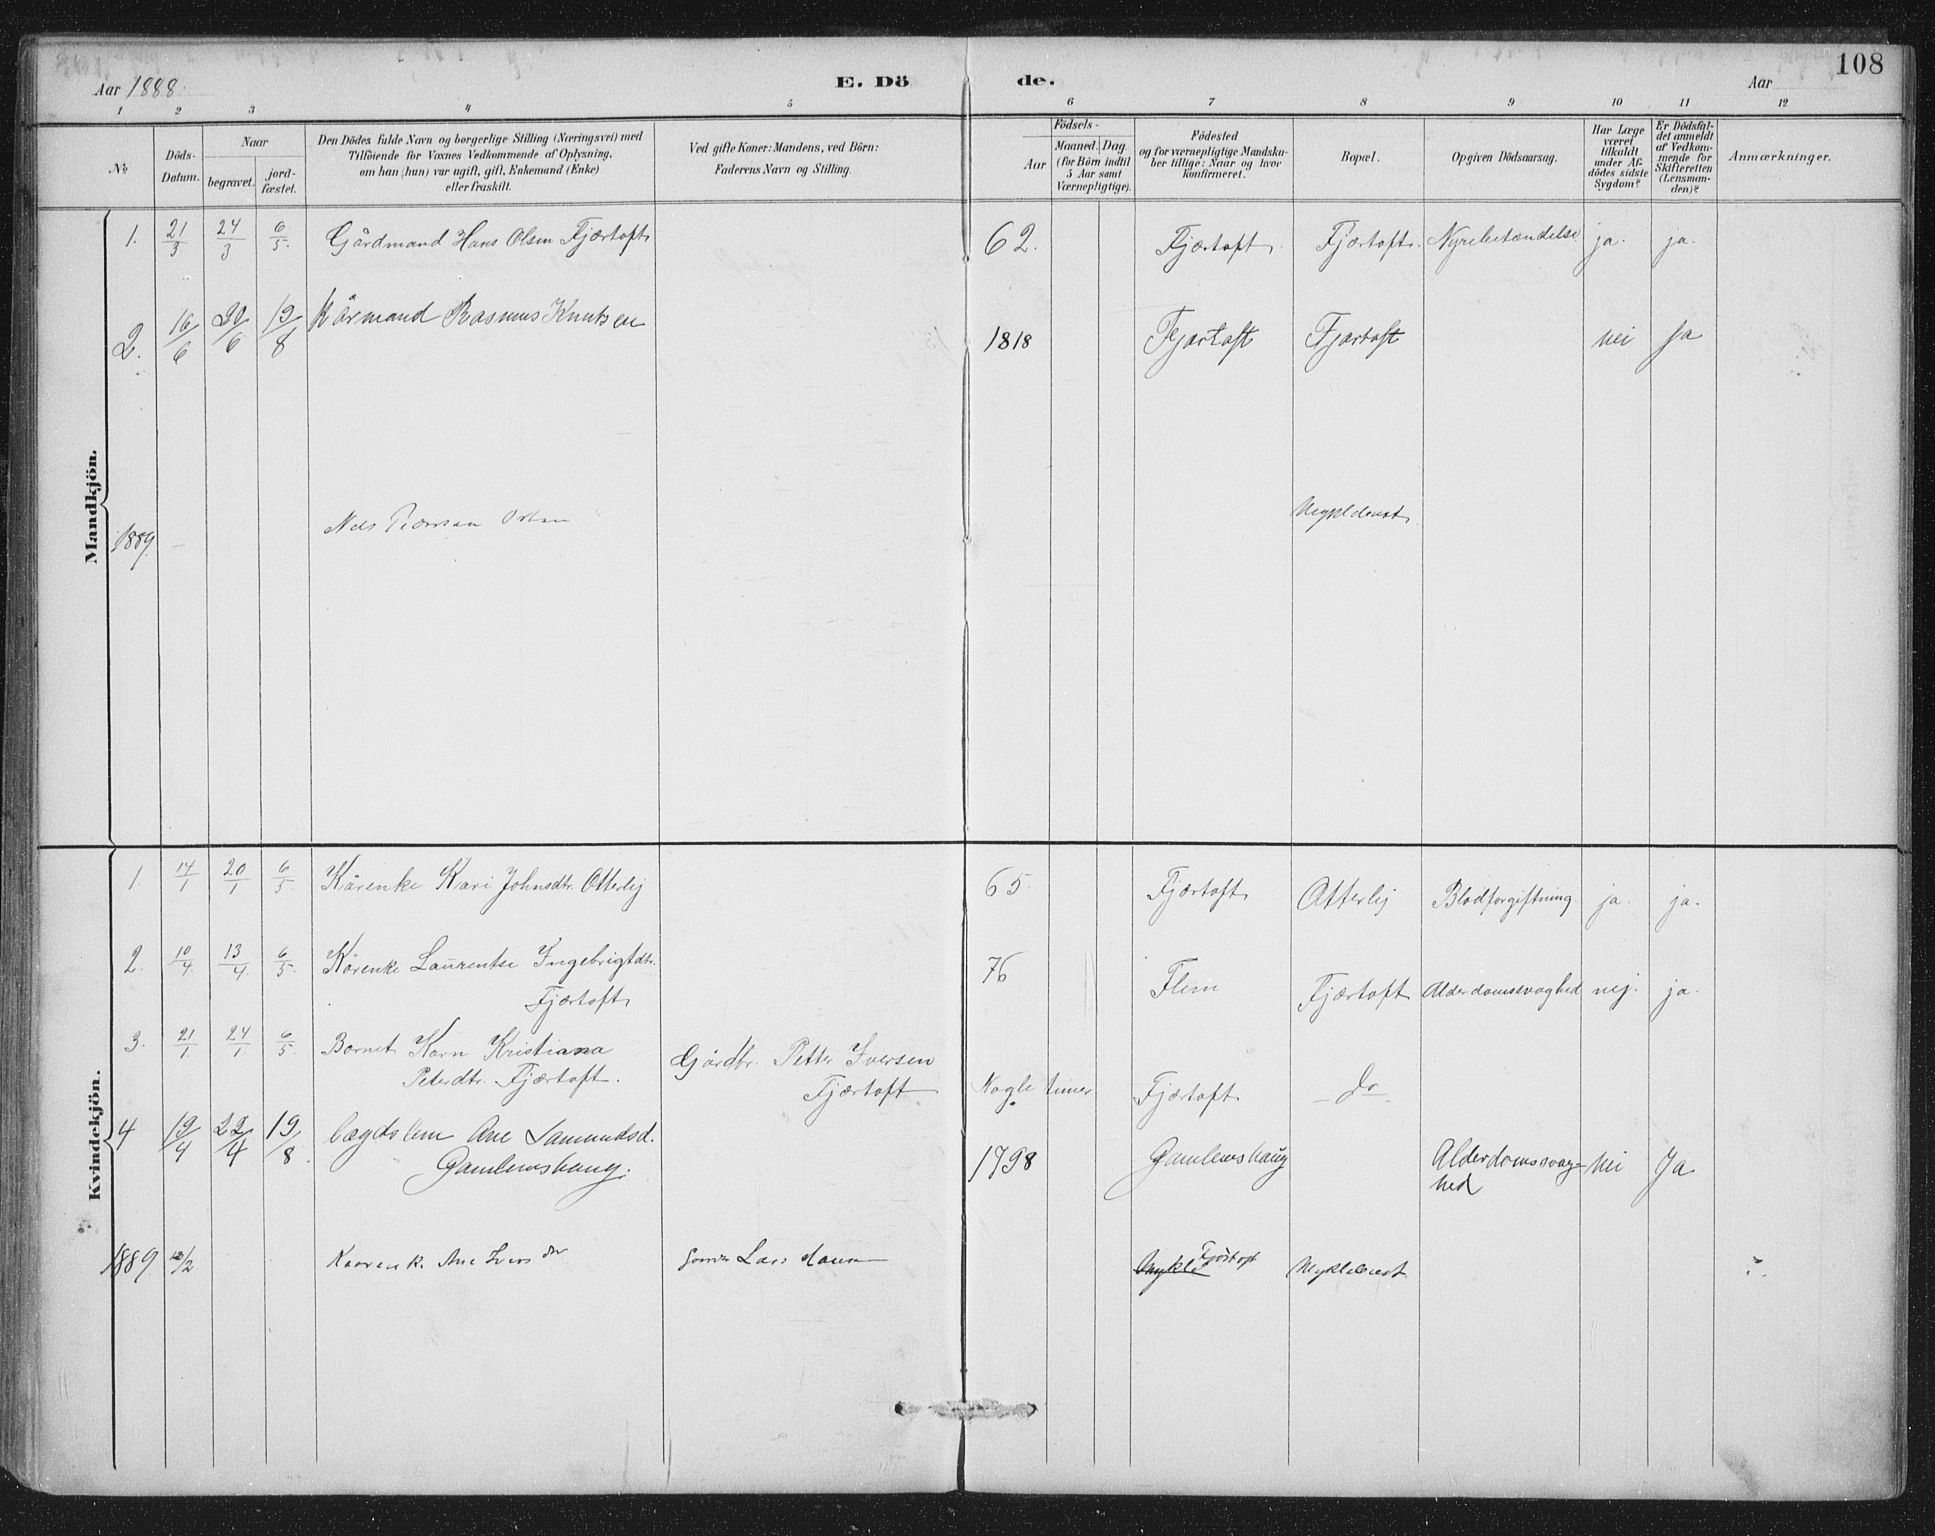 108
Aar 1888. E. Dö de. Aar
1 2 3 4 5 6 7 8 9 10 11 12
No
Döds-
Datum.
Naar
begravet.
jord-
fæstet.
Den Dödes fulde Navn og borgerlige Stilling (Næringsvei) med
Tilföiende for Voxnes Vedkommende af Oplysning,
om han (hun) var ugift, gift, Enkemand (Enke)
eller fraskilt.
Ved gifte Koner: Mandens, ved Börn:
Faderens Navn og Stilling.
Födsels-
Aar
Maaned. Dag
(for Börn indtil
5 Aar samt
Værnepligtige).
Födested
og for værnepligtige Mandska-
ber tillige: Naar og hvor
konfirmeret.
Bopæl.
Opgiven Dödsaarsag.
Har Læge
været
tilkaldt
under Af-
dödes sidste
Sygdom?
Er Dödsfal-
det anmeldt
af Vedkom-
mende for
Skifteretten
(Lensman-
den)?
Anmærkninger.
Mandkjön.
1. 21/3 24/3 6/5. Gårdmand Hans Olsen Fjærtoft 62. Fjærtoft. Fjærtoft. Nyrebetændelse ja. ja.
2. 16/6 20/6 19/8 Kårmand Rasmus Knutsen 1818 Fjærtoft Fjærtoft nei Ja
1889. Nels
Kvindekjön.
1. 14/1 20/1 6/5. Kårenke Kari Johnsdtr. Otterlej 65. Fjærtoft Otterlej Blodforgiftning. ja. ja.
2. 10/4 13/4 6/5. Kårenke Laurentse Ingebrigtdtr. 76 Flem Fjærtoft Alderdomssvaghed nej. ja.
Fjærtoft
3. 21/1 24/1 6/5. Barnet Karn Kristiana Gårdbr. Petter Iversen
Peterdtr. Fjærtoft. Fjærtoft Nogle timer Fjærtoft - do -
4 19/4 22/4 19/8 Lægdslem Ane Samundsd. 1798 Gamlemshaug Alderdomssvag- nei Ja
Gamlemshaug. hed
1889 /2 Kaarenke Ane Ivers dtr Lars Mykle Fjørtoft Myklebust ?